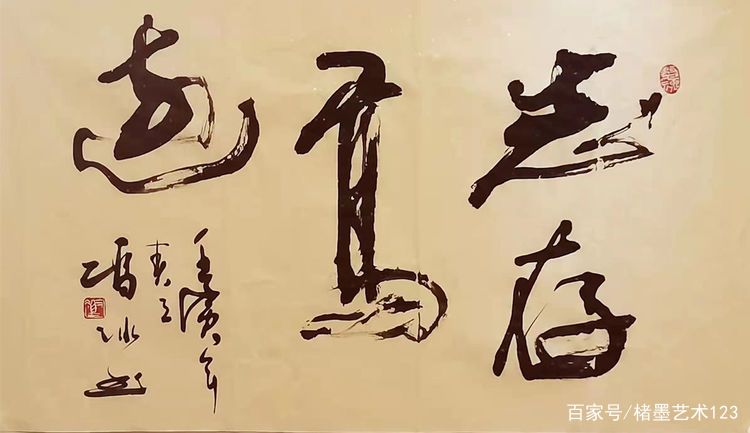 志存
高
远
壬寅年
春
冯冰书
百家号/楮墨艺术123